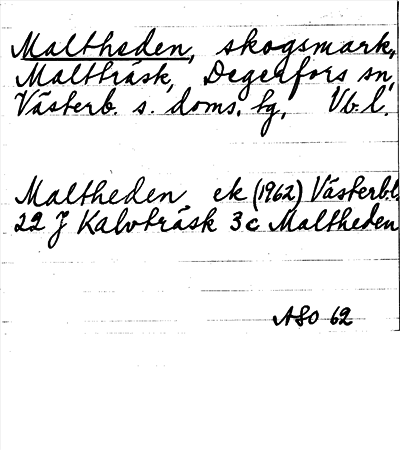 Maltheden, skogsmark,
Malträsk, Degerfors sn,
Västerb. s. doms. tg, Vb. l.
Maltheden ek (1962) Västerb.l.
22 J Kalvträsk 3c Maltheden
ASO 62